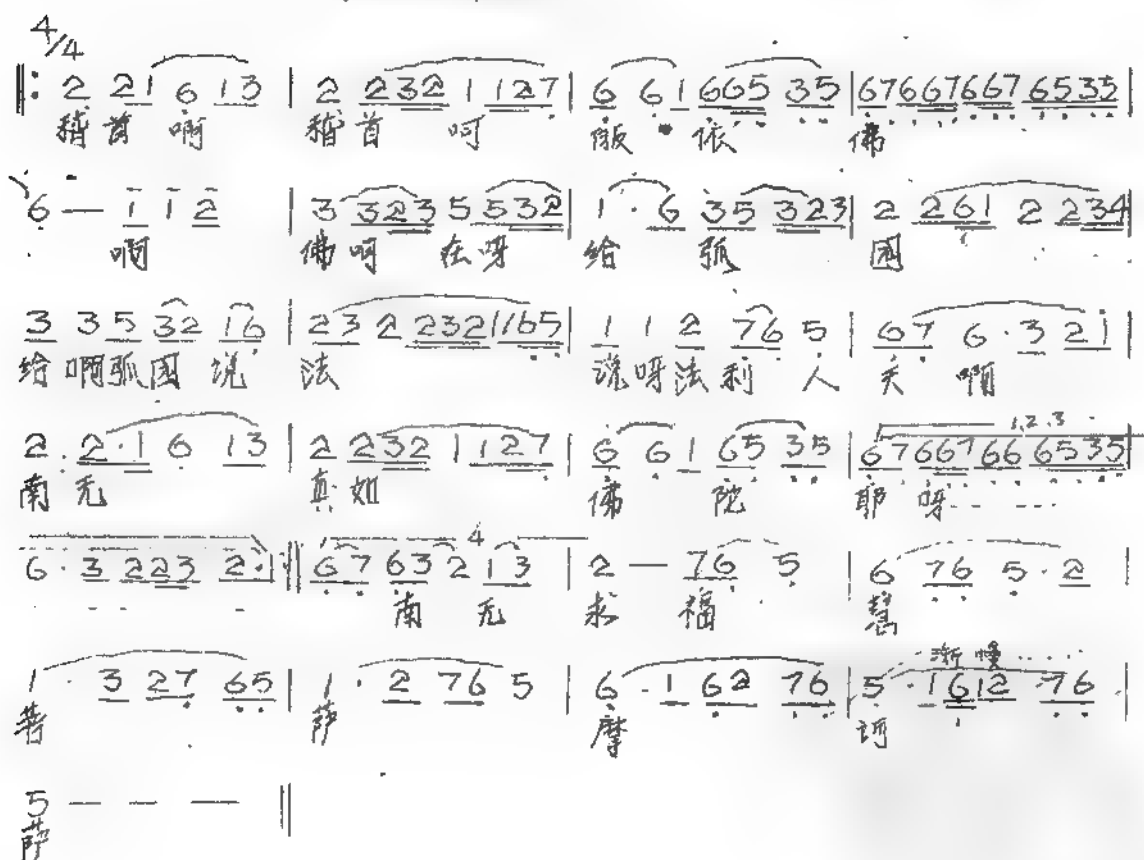 4/4
‖: 2 21 6 13 | 2 232 1 127 | 6 6 1 665 35 | 67667667 6535 |
稽首 啊 稽首 呵 皈 依 佛
6 — 1 1 2 | 3 323 5 532 | 1 · 6 35 323 | 2 261 2 234 |
啊 佛呵 在呀 给 孤 园
3 3 5 32 16 | 23 2 232 1165 | 1 1 2 76 5 | 67 6 · 3 21 |
给啊孤园 说 法 说呀法利 人 天 啊
2 · 2 · 1 6 13 | 2 232 1 127 | 6 6 1 65 35 | 67667 66 6535 | 1.2.3
南 无 真如 佛 陀 耶 呀 - - - -
6 · 3 223 2 · :‖ 67 63 2 13 | 2 — 76 5 | 6 76 5 · 2 | 4
南 无 求 福 慧
1 · 3 27 65 | 1 · 2 76 5 | 6 · 1 62 76 | 5 · 1612 76 | 渐慢
菩 萨 摩 诃
5 — — — ‖
萨